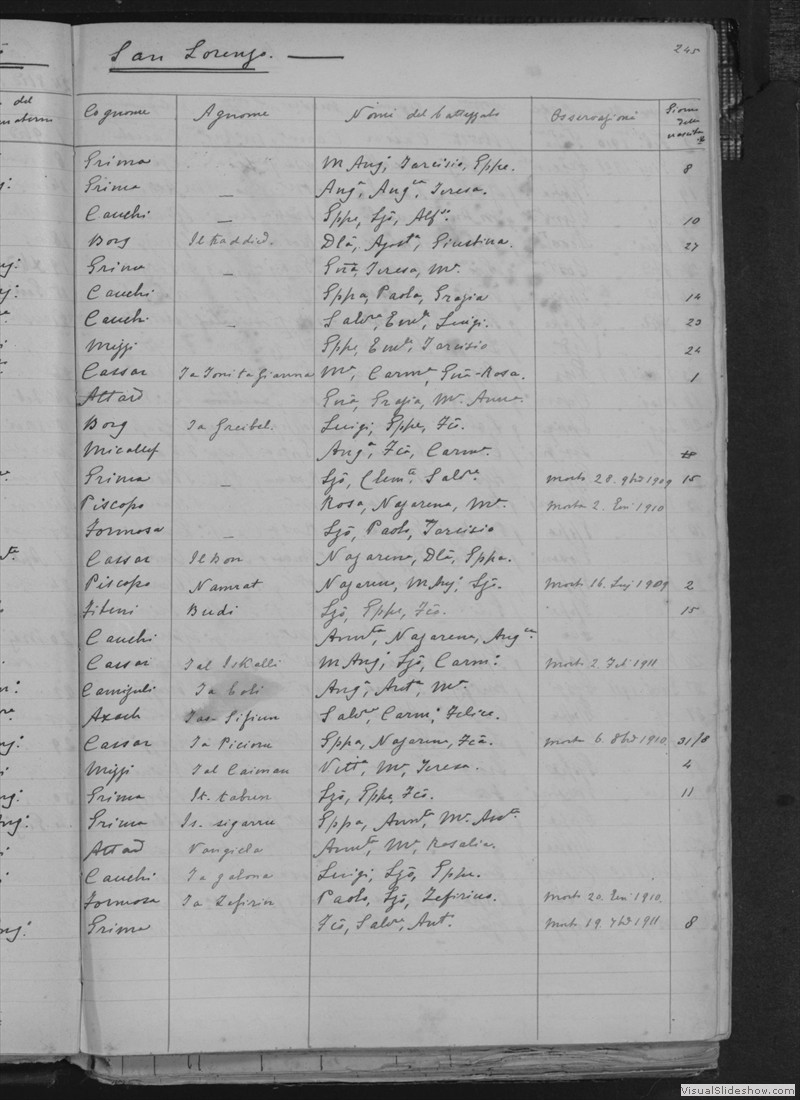 San Lorenzo. 245
del
Cognome Agnome Nomi del battezzato Osservazioni Giorno della nascita
Grima M Ang.ⁱ Tarcisio, Gppe. 8
Grima Ang.ᵃ, Ang.ᶜᵃ, Teresa.
Cauchi — Gppe, Ljō, Alf.ᵒ 10
Borg Il haddied. Dlā, Agost.ᵃ, Giustina. 27
Grima — Gnā, Teresa, Mᵃ.
Cauchi Gppa, Paola, Grazia 14
Cauchi Salv.ᵉ, Em.ˡᵉ, Luigi. 23
Mizzi Gppe, Em.ˡᵉ, Tarcisio 24
Cassar Ta Toni ta Gianna Mᵃ, Carm.ᵃ, Gnā-Rosa. 1
Attard Gnā, Grazia, Mᵃ. Annā.
Borg Ta Greibel. Luigi, Gppe, Fcō.
Micallef Ang.ᵃ, Fcā, Carmᵃ.
Grima — Ljō, Clem.ᵉ, Salv.ᵉ morto 28. 9bre 1909 15
Piscopo Rosa, Nazarena, Mᵃ. morta 2. Gen 1910
Formosa — Ljō, Paolo, Tarcisio
Cassar Il Bon Nazarena, Dlā, Gppa.
Piscopo Namrat Nazareno, M Ang.ⁱ, Ljō. morto 16. Lug 1909 2
Fiteni Budi Ljō, Gppe, Fcō. 15
Cauchi Annt.ᵃ, Nazarena, Ang.ᶜᵃ
Cassar Tal Iskalli M Ang.ⁱ, Ljō, Carm.ᵒ morto 2. Feb 1911
Ang.ᵃ, Ant.ᵃ, Mᵃ.
Axach Salv.ᵉ, Carm.ᵒ, Felice.
Cassar Ta Piciona Gppa, Nazarena, Fcā. morta 6. 8bre 1910 31/8
Mizzi Tal Caiman Vitt.ᵃ, Mᵃ, Teresa. 4
Grima Ljō, Gppe, Fcō. 11
Grima Is. sigarru Gppa, Annt.ᵃ, Mᵃ. Ant.ᵃ
Attard Vangiela Annt.ᵃ, Mᵃ, Rosalia.
Cauchi Ta galona Luigi, Ljō, Gppe.
Formosa Ta Zefirin Paolo, Ljō, Zefirino. morto 20. Gen 1910.
Grima Fcō, Salv.ᵉ, Ant.ᵒ morto 19. 7bre 1911 8
VisualSlideshow.com